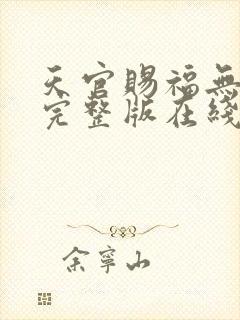 天官賜福無
完整版在綫
余寧山